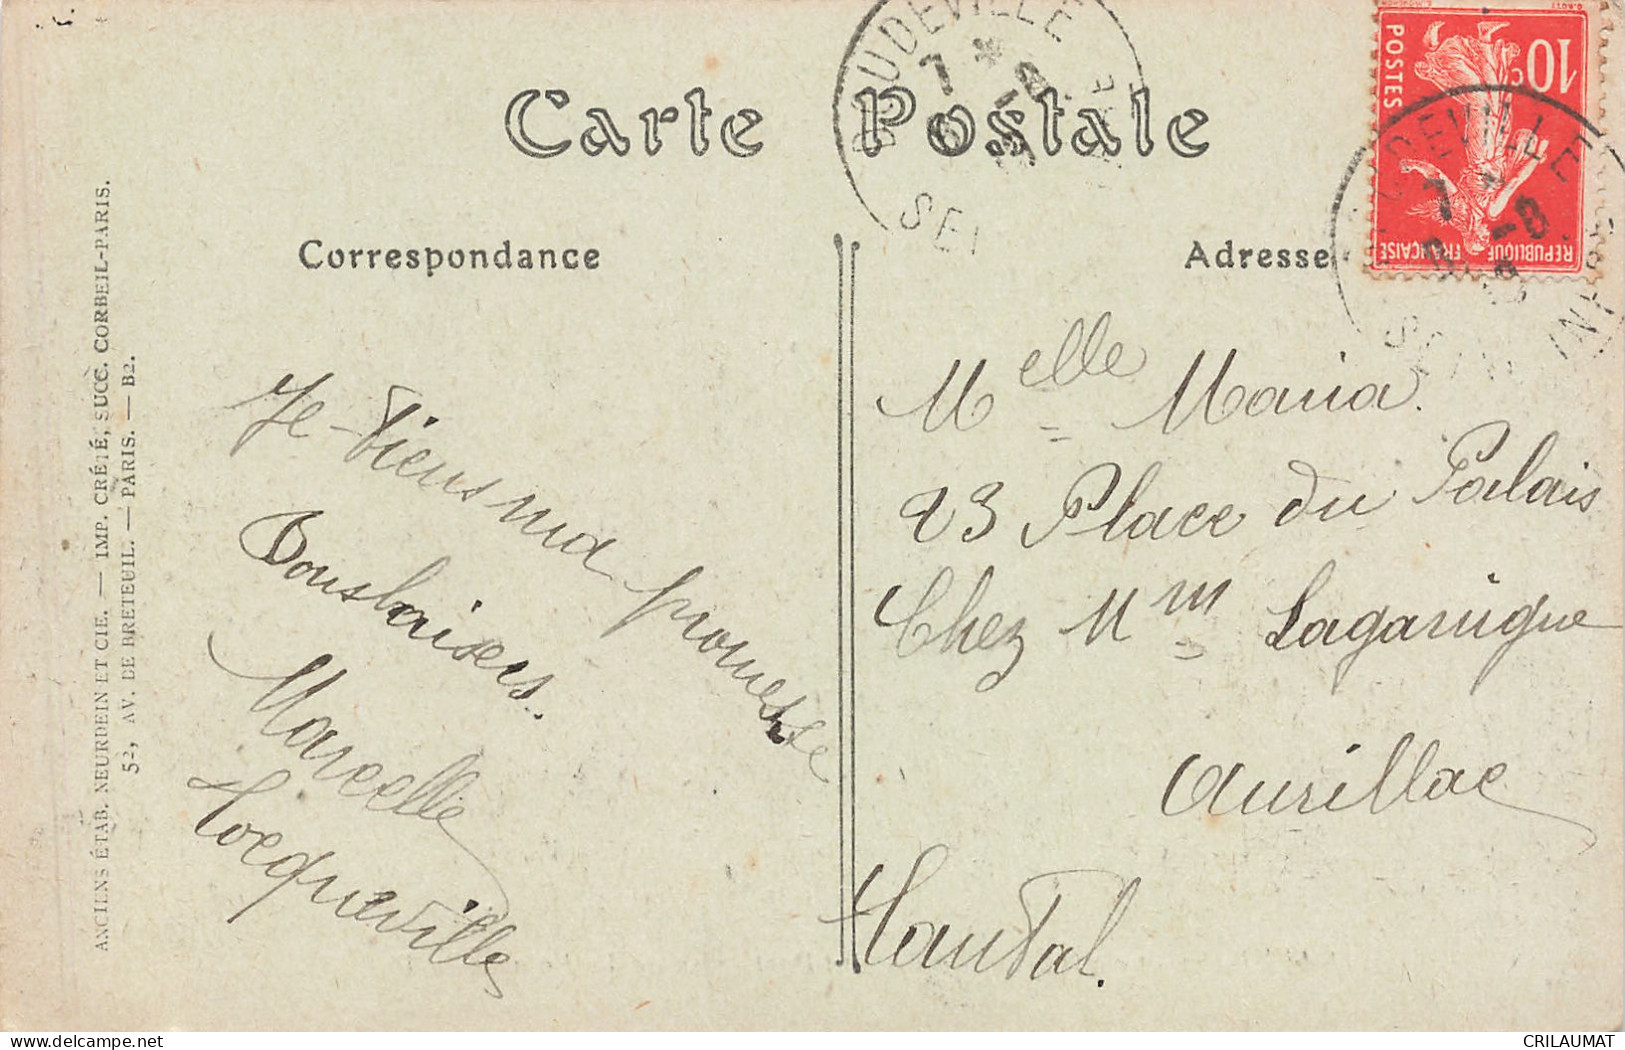 Carte Postale
Correspondance
Adresse
ANCIENS ÉTAB. NEURDEIN ET CIE. — IMP. CRÉTÉ, SUCC. CORBEIL-PARIS.
52, AV. DE BRETEUIL. — PARIS. — B2.
Je tiens ma promesse
Bons baisers.
Marcelle
Hocqueville
10c
POSTES
REPUBLIQUE
FRANÇAISE
DOUDEVILLE
7 * 8
SEI
DOUDEVILLE
7 * -8
INF
Melle Maria.
23 Place du Palais
Chez Mm Laganigue
Aurillac
Cantal.
delcampe.net
CRILAUMAT